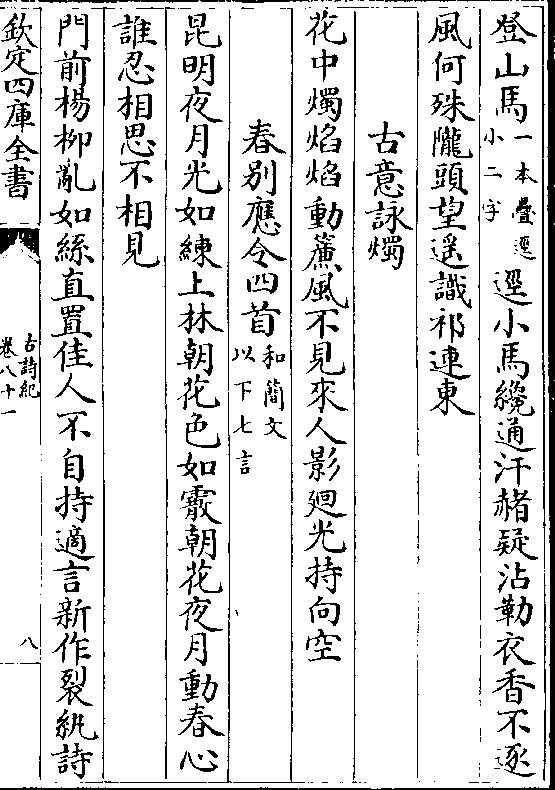 登山馬一本疊逕小二字逕小馬纔通汗赭疑沾勒衣香不逐
風何殊隴頭望遥識祁連東
古意詠燭
花中燭焰焰動簾風不見來人影廻光持向空
春别應令四首和簡文以下七言
昆明夜月光如練上林朝花色如霰朝花夜月動春心
誰忍相思不相見
門前楊柳亂如絲直置佳人不自持適言新作裂紈詩
欽定四庫全書
古詩紀
卷八十一
八